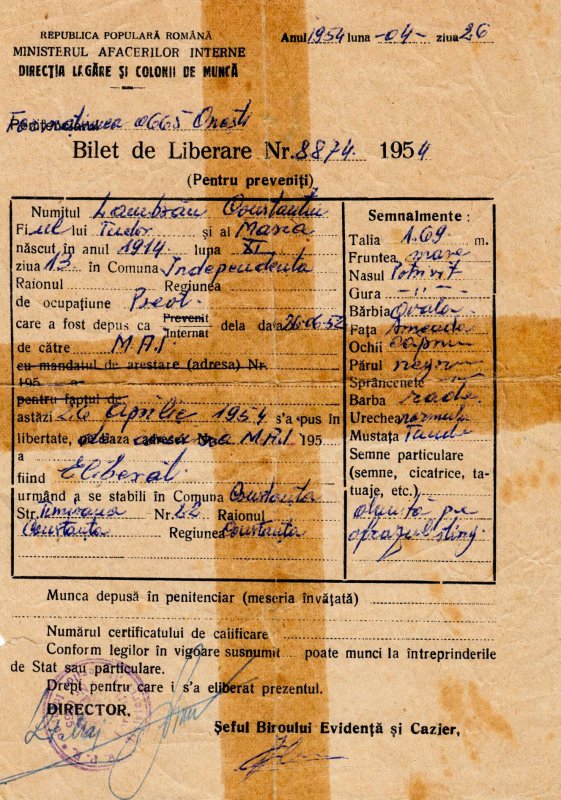 REPUBLICA POPULARĂ ROMÂNĂ
MINISTERUL AFACERILOR INTERNE
DIRECȚIA LAGĂRE ȘI COLONII DE MUNCĂ
Anul 1954 luna -04- ziua 26
Formațiunea 0665 Onești
Bilet de Liberare Nr. 8874. 1954
(Pentru preveniți)
Numitul Lambrău Constantin
Fiul lui Tudor și al Maria
născut în anul 1914 luna XI
ziua 13 în Comuna Independenta
Raionul Regiunea
de ocupațiune Preot.
care a fost depus ca Prevenit
Internat dela data 26.06.52
de către M.A.I.
cu mandatul de arestare (adresa) Nr.
195
pentru faptul de
astăzi 26 Aprilie 1954 s'a pus în
libertate, baza M.A.I 195
a
fiind Eliberat.
urmând a se stabili în Comuna Constanța
Str. Timioana Nr. 22 Raionul
Constanța Regiunea Constanța
Semnalmente :
Talia 1.69 m.
Fruntea mare
Nasul Potrivit
Gura -"-
Bărbia ovala
Fața
Ochii căprui
Părul negru
Sprâncenele -"-
Barba rade
Urechea normala
Mustața Tunde
Semne particulare
(semne, cicatrice, ta-
tuaje, etc.)
pe
obrazul sting
Munca depusă în penitenciar (meseria învățată)
Numărul certificatului de calificare
Conform legilor în vigoare susnumit poate munci la întreprinderile
de Stat sau particulare.
Drept pentru care i s'a eliberat prezentul.
DIRECTOR,
Șeful Biroului Evidență și Cazier,